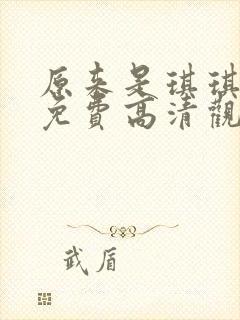 原来是琪琪
免費高清觀
武盾